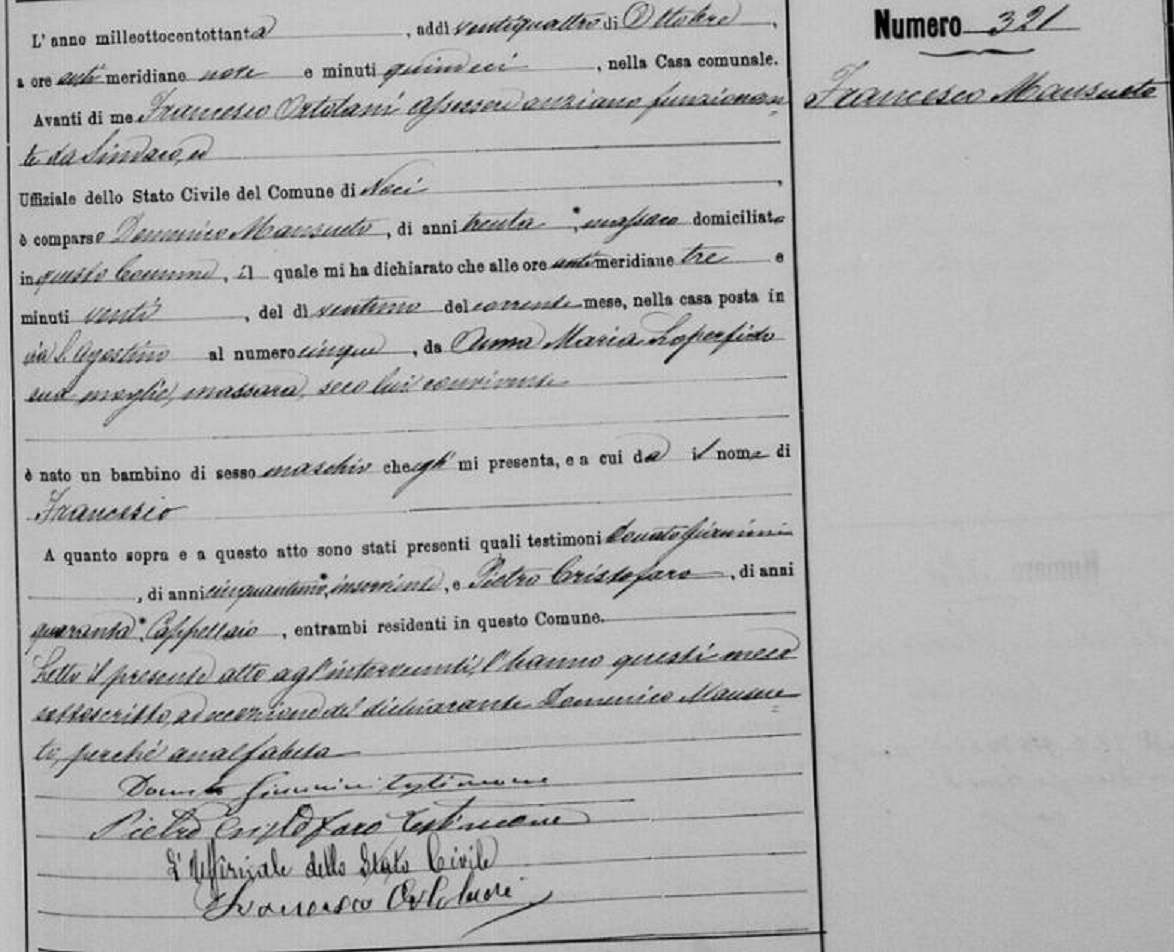 Numero 321
Francesco Mansueto
L'anno milleottocentottanta, addì ventiquattro di Ottobre,
a ore anti meridiane nove e minuti quindici, nella Casa comunale.
Avanti di me Francesco Ortolani assessore anziano funzionan-
te da Sindaco, ed
Uffiziale dello Stato Civile del Comune di Noci,
è comparso Domenico Mansueto, di anni trenta, massaro domiciliato
in questo Comune, il quale mi ha dichiarato che alle ore anti meridiane tre e
minuti venti, del dì ventuno del corrente mese, nella casa posta in
via S. Agostino al numero cinque, da Anna Maria Loperfido
sua moglie, massara, seco lui convivente
è nato un bambino di sesso maschio che egli mi presenta, e a cui dà il nome di
Francesco
A quanto sopra e a questo atto sono stati presenti quali testimoni Donato Giannini
, di anni cinquantuno, inserviente, e Pietro Cristofaro, di anni
quaranta, Cappellaio, entrambi residenti in questo Comune.
Letto il presente atto agl'intervenuti, l'hanno questi meco
sottoscritto, ad eccezione del dichiarante Domenico Mansue-
to, perché analfabeta
Donato Giannini testimone
Pietro Cristofaro testimone
L'Uffiziale dello Stato Civile
Francesco Ortolani